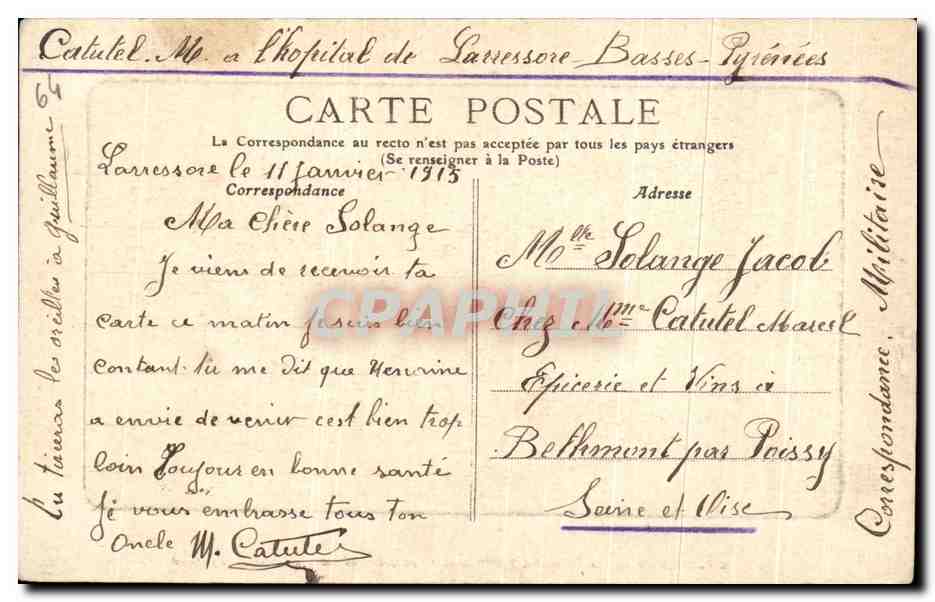 Catutel. M. a l'hopital de Larressore Basses-Pyrénées
64
CARTE POSTALE
La Correspondance au recto n'est pas acceptée par tous les pays étrangers
(Se renseigner à la Poste)
Larressore le 11 Janvier 1915
Correspondance
Ma Chère Solange
Je viens de recevoir ta
carte ce matin je suis bien
contant tu me dit que
a envie de venir cest bien trop
loin Toujours en bonne santé
Je vous embrasse tous ton
Oncle M. Catutel
Tu tireras les oreilles a Guillaume
Adresse
Mlle Solange Jacob
Chez Mme Catutel Marcel
Epicerie et Vins à
Bethmont par Poissy
Seine et Oise
Correspondance. Militaire
CPAPHIL